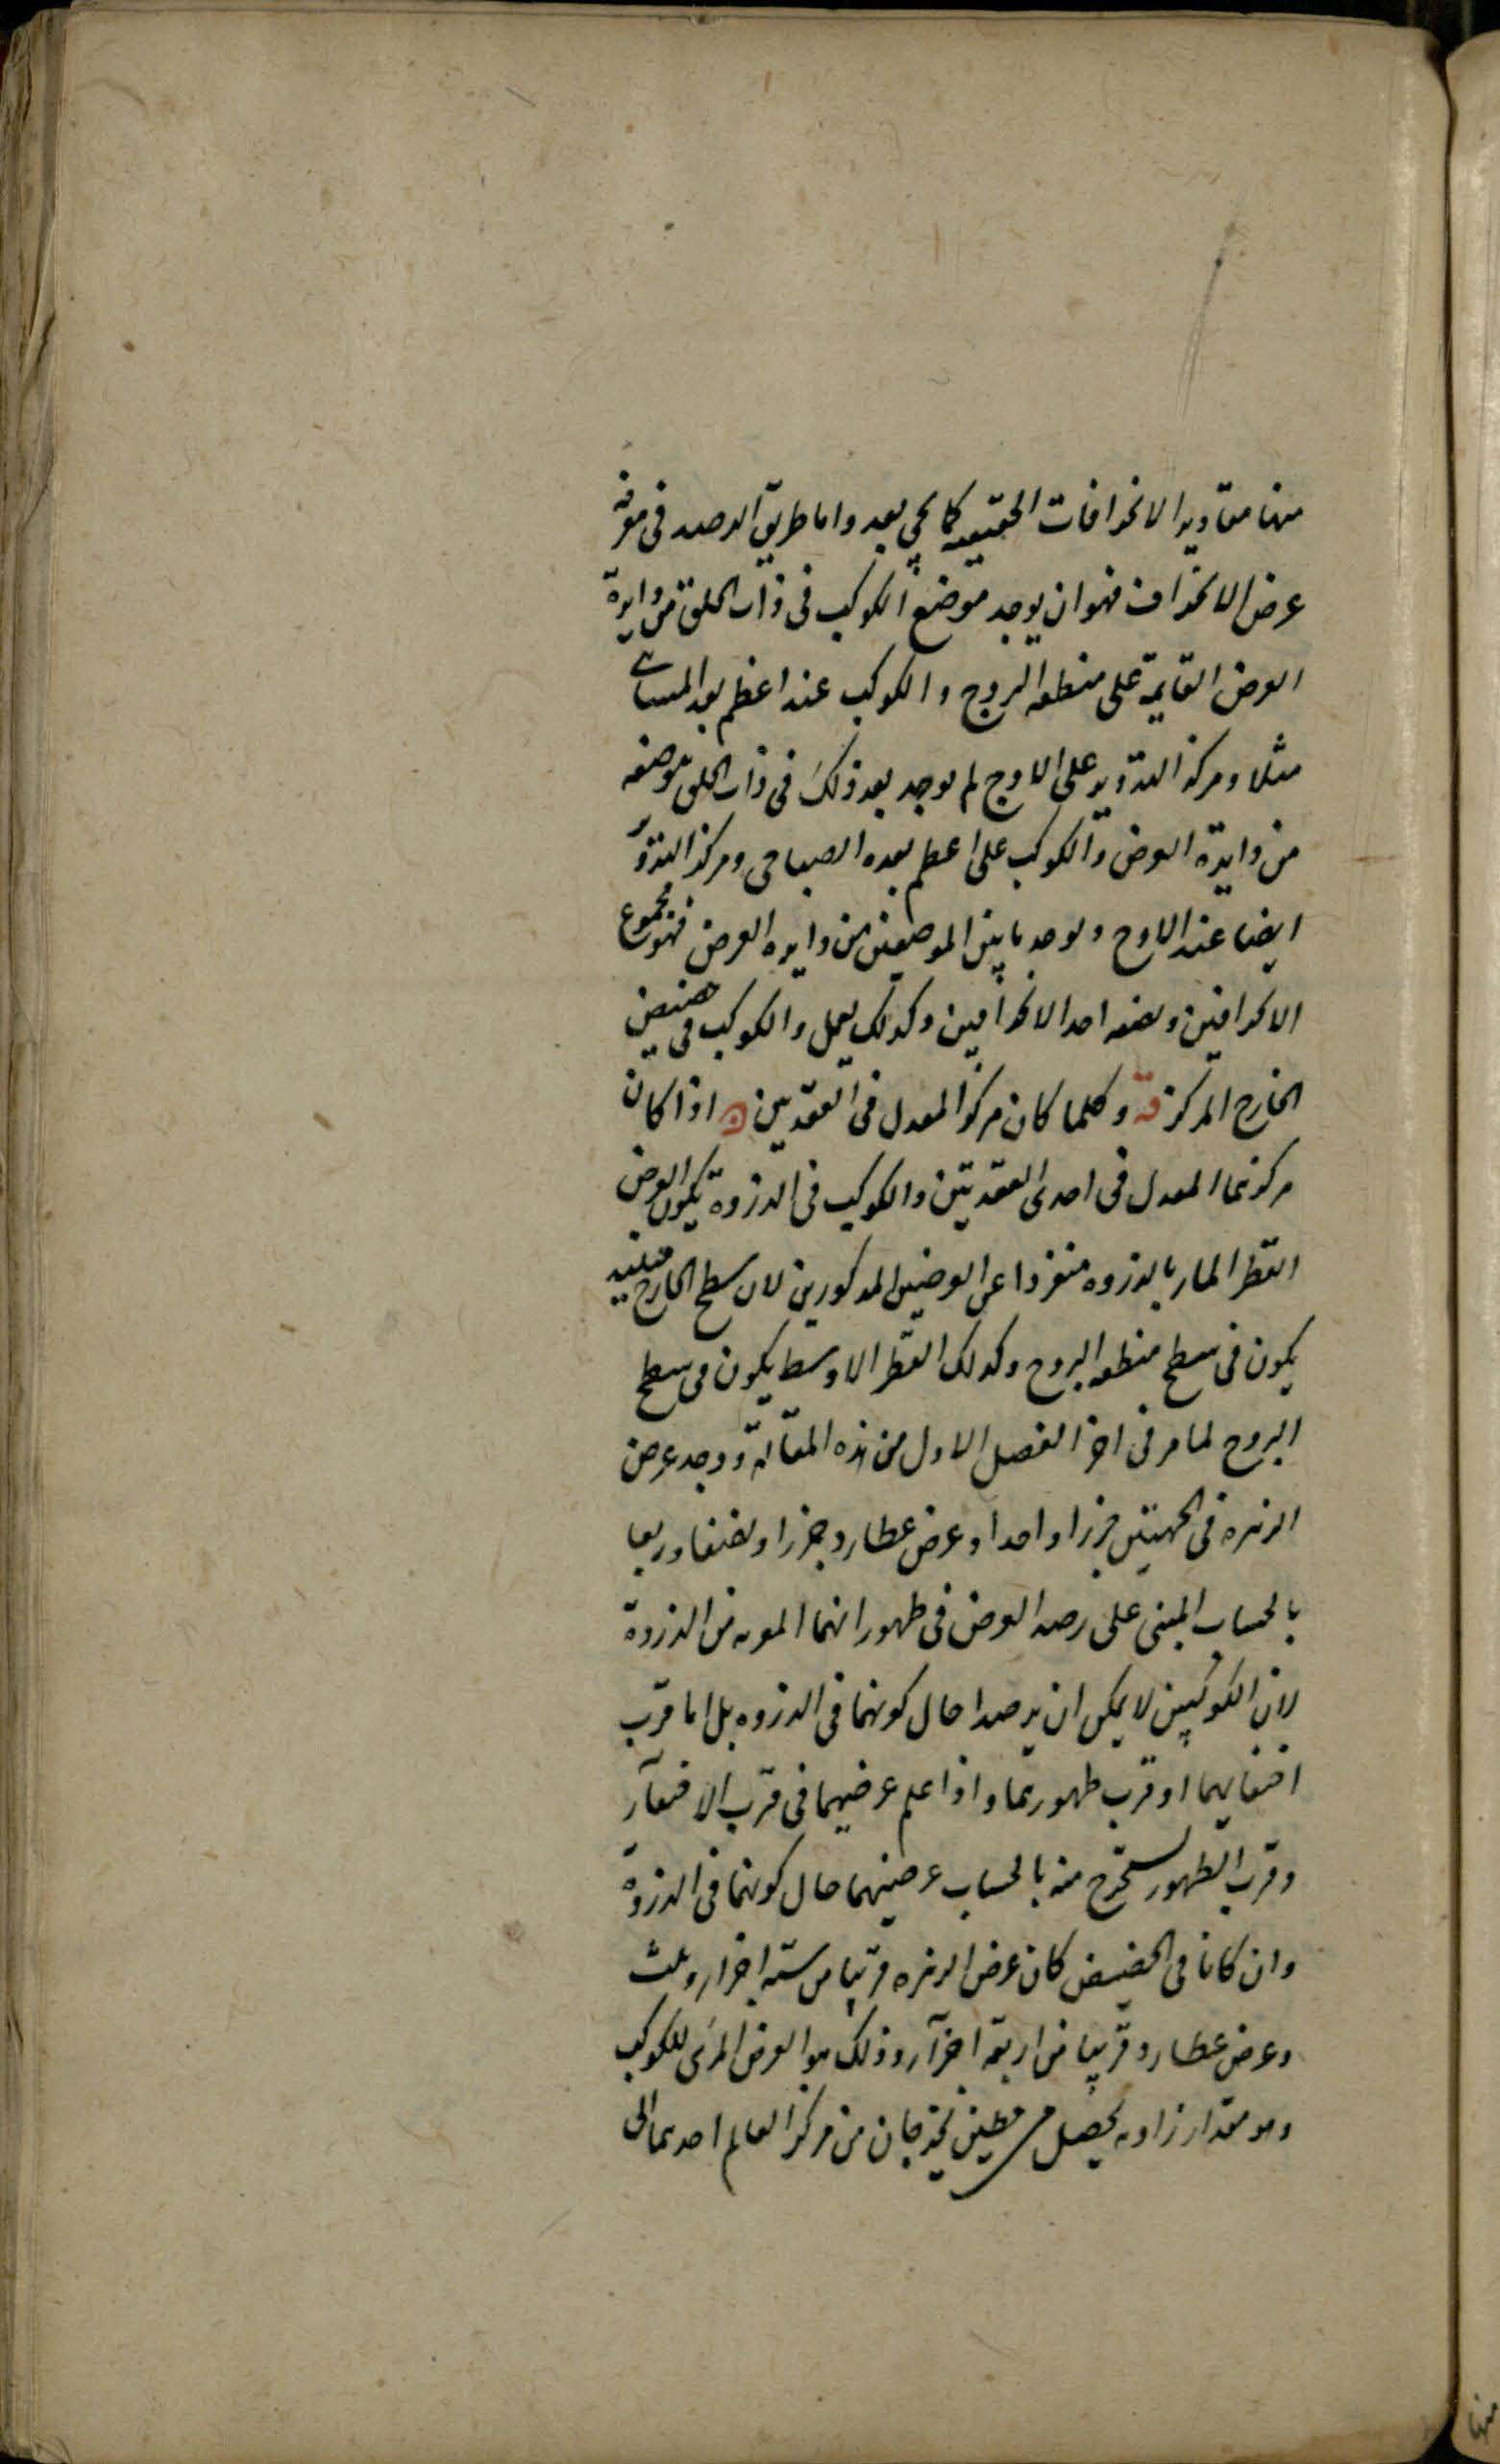 منها مقادير الانحرافات الحقيقيه كما يجي بعد واما طريق الرصد فى معرفة
عرض الانحراف فهو ان يوجد موضع الكوكب فى ذات الحلق من دايرة
العرض القايمة على منطقه البروج والكوكب عند اعظم بعد المسائى
مثلا ومركز التدوير على الاوج ثم يوجد بعد ذلك فى ذات الحلق موضعه
من دايرة العرض والكوكب على اعظم بعده الصباحى ومركز التدوير
ايضا عند الاوج ويوجد ما بين الموضعين من دايره العرض فهو مجموع
الانحرافين ونصفه احد الانحرافين وكذلك يعمل والكوكب فى حضيض
الخارج المركز قه وكلما كان مركز المعدل فى العقدتين اذا كان
مركزهما المعدل فى احدى العقدتين والكوكب فى الذروة يكون لعرض
القطر المار بالذروه منفردا عن العرضين المذكورين لان سطح الخارج حينئذ
يكون فى سطح منطقه البروج وكذلك القطر الاوسط يكون فى سطح
البروج لما مر فى اخر الفصل الاول من هذه المقالة ووجد عرض
الزهره فى الجهتين جزءا واحدا وعرض عطارد جزءا ونصفا وربعا
بالحساب المبنى على رصد العرض فى ظهوراتهما القريبه من الذروة
لان الكوكبين لا يمكن ان يرصدا حال كونهما فى الذروه بل اما قرب
اختفايهما او قرب ظهورهما واذا علم عرضيهما فى قرب الاختفآء
وقرب الظهور يستخرج منه بالحساب عرضيهما حال كونهما فى الذروة
وان كانا فى الحضيض كان عرض الزهره قريبا من ستة اجزاء وثلث
وعرض عطارد قريبا من اربعة اجزآء وذلك هو العرض المرئى للكوكب
وهو مقدار زاويه يحصل من خطين يخرجان من مركز العالم احدهما الى
منها